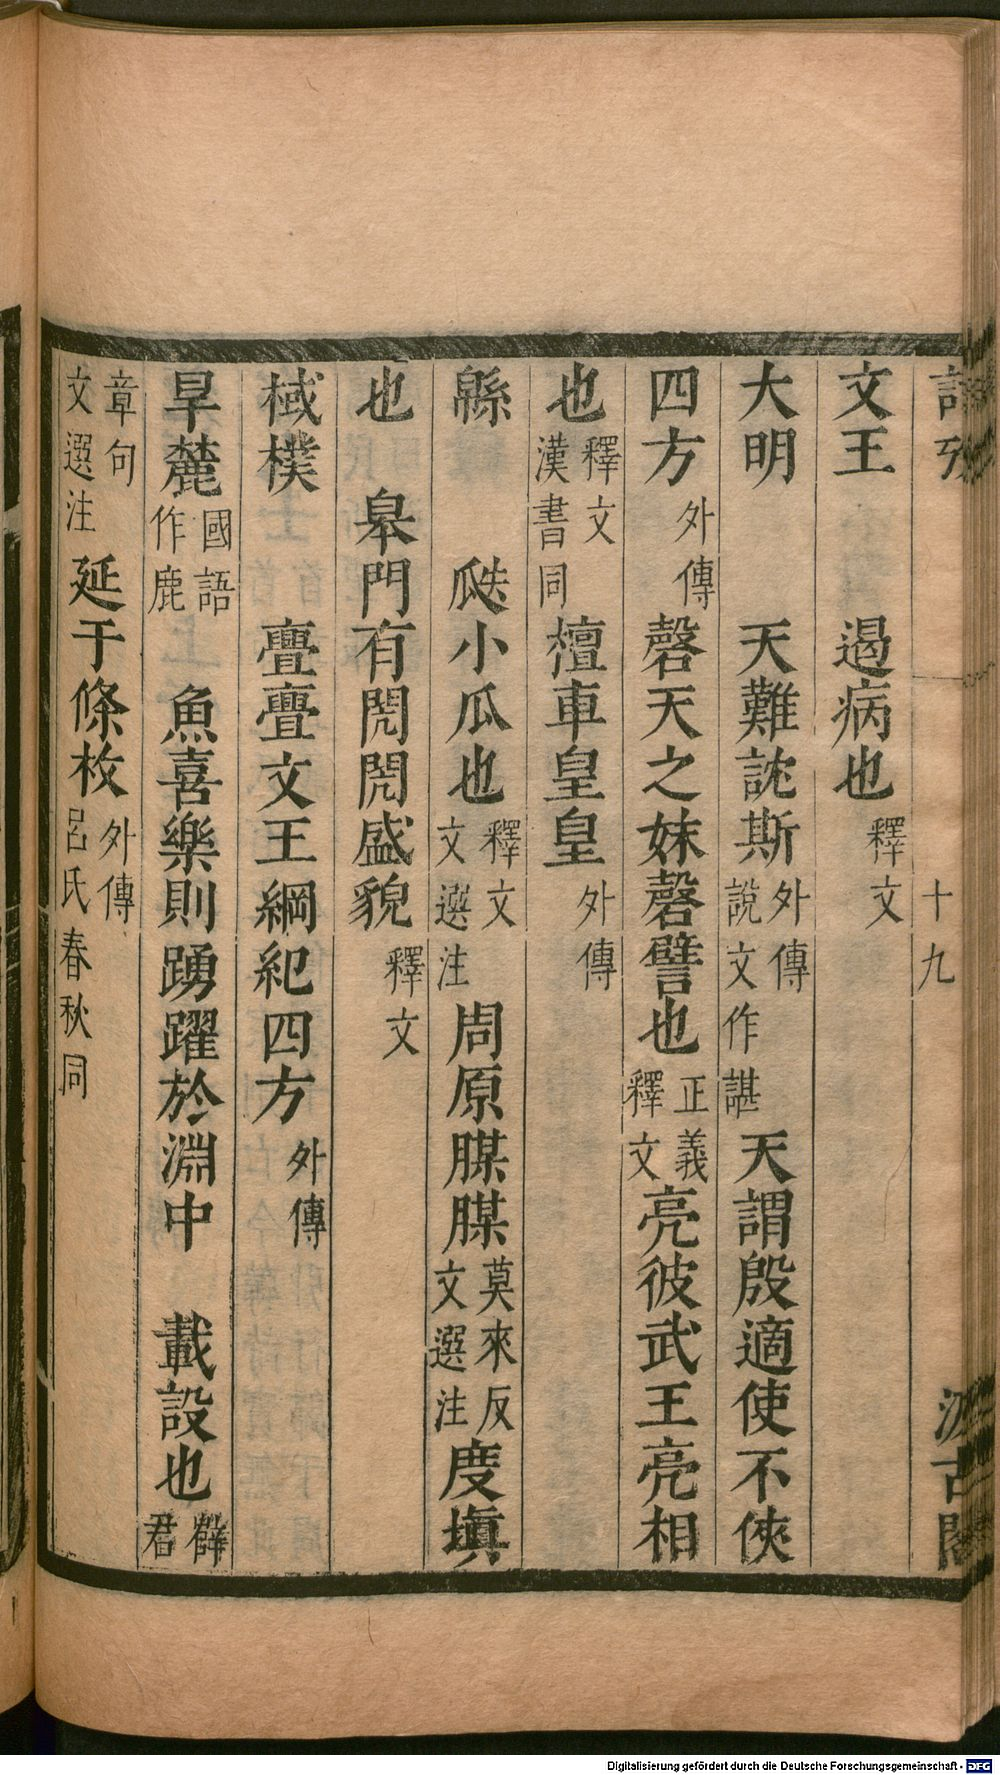 詩攷　十九　汲古閣
文王　　遏病也釋文
大明　　天難訦斯外傳說文作諶天謂殷適使不俠
四方外傳　磬天之妹磬譬也正義釋文亮彼武王亮相
也釋文漢書同檀車皇皇外傳
緜　　瓞小瓜也釋文文選注周原腜腜莫來反文選注度塡
也　臯門有閌閌盛貌釋文
棫樸　　亹亹文王綱紀四方外傳
旱麓國語作鹿　魚喜樂則踴躍於淵中　載設也薛君
章句文選注延于條枚外傳呂氏春秋同
Digitalisierung gefördert durch die Deutsche Forschungsgemeinschaft - DFG